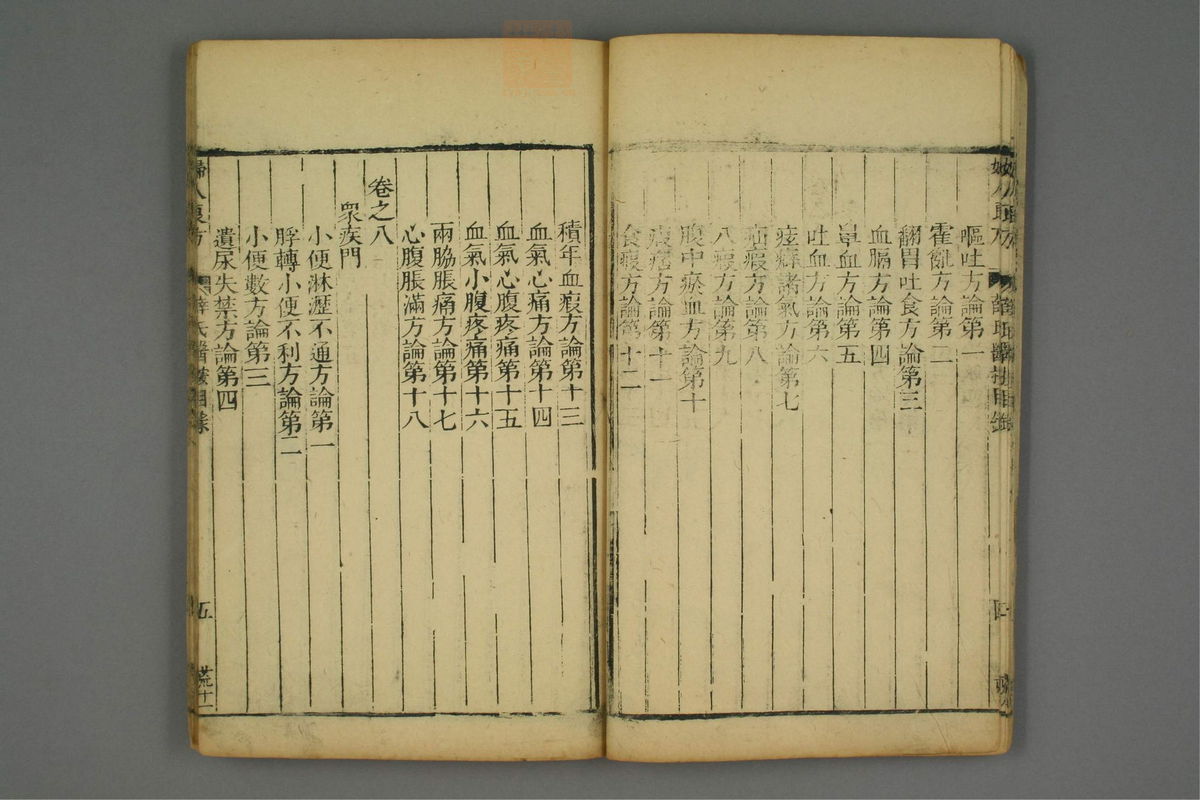 嘔吐方論第一
霍亂方論第二
翻胃吐食方論第三
血膈方論第四
鼻血方論第五
吐血方論第六
痃癖諸氣方論第七
疝瘕方論第八
八瘕方論第九
腹中瘀血方論第十
癥痞方論第十一
食癥方論第十二
積年血瘕方論第十三
血氣心痛方論第十四
血氣心腹疼痛第十五
血氣小腹疼痛第十六
兩脇脹痛方論第十七
心腹脹滿方論第十八
卷之八
眾疾門
小便淋瀝不通方論第一
脬轉小便不利方論第二
小便數方論第三
遺尿失禁方論第四
婦人良方
薛氏醫按目錄
五
荒十二